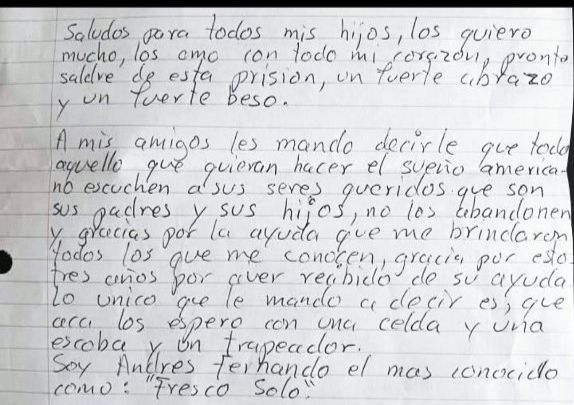 Saludos para todos mis hijos, los quiero
mucho, los amo con todo mi corazón, pronto
saldre de esta prision, un fuerte abrazo
y un fuerte beso.
A mis amigos les mando decirle que todo
aquello que quieran hacer el sueño america-
no escuchen a sus seres queridos que son
sus padres y sus hijos, no los abandonen
y gracias por la ayuda que me brindaron
todos los que me conocen, gracia por esto
tres años por aver recibido de su ayuda
lo unico que le mando a decir es, que
aca los espero con una celda y una
escoba y un trapeador.
Soy Andres fernando el mas conocido
como: "Fresco Solo".